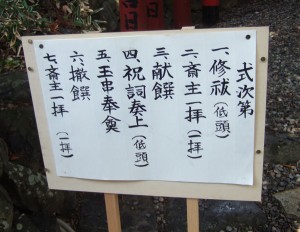 式次第
一、修祓(低頭)
二、斎主一拝(一拝)
三、献饌
四、祝詞奏上(低頭)
五、玉串奉奠
六、撤饌
七、斎主一拝(一拝)